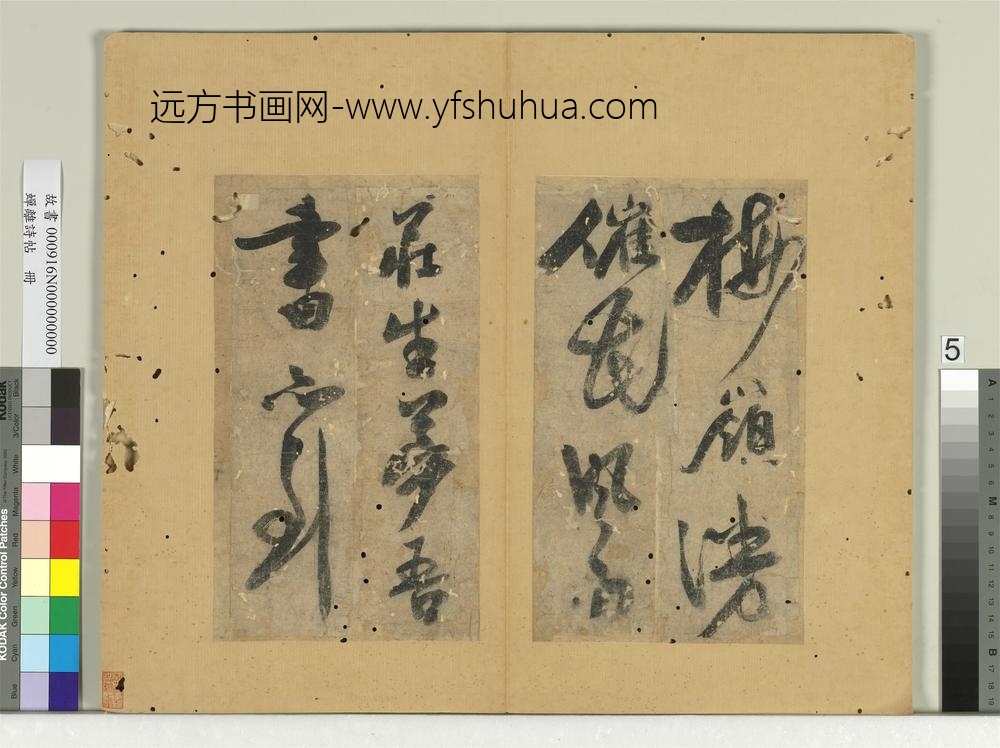 远方书画网-www.yfshuhua.com
梅嶺
催花風
莊生夢吾
書
故書 000916N000000000
詩帖 冊
5
Kodak
KODAK Color Control Patches
Blue Cyan Green Yellow Red Magenta White 3/Color Black
A 1 2 3 4 5 6 M 8 9 10 11 12 13 14 15 B 17 18 19